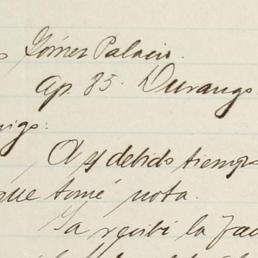 Gómez Palacio.
Ap. 85. Durango
A su debido tiempo
que tomé nota.
Ya recibí la